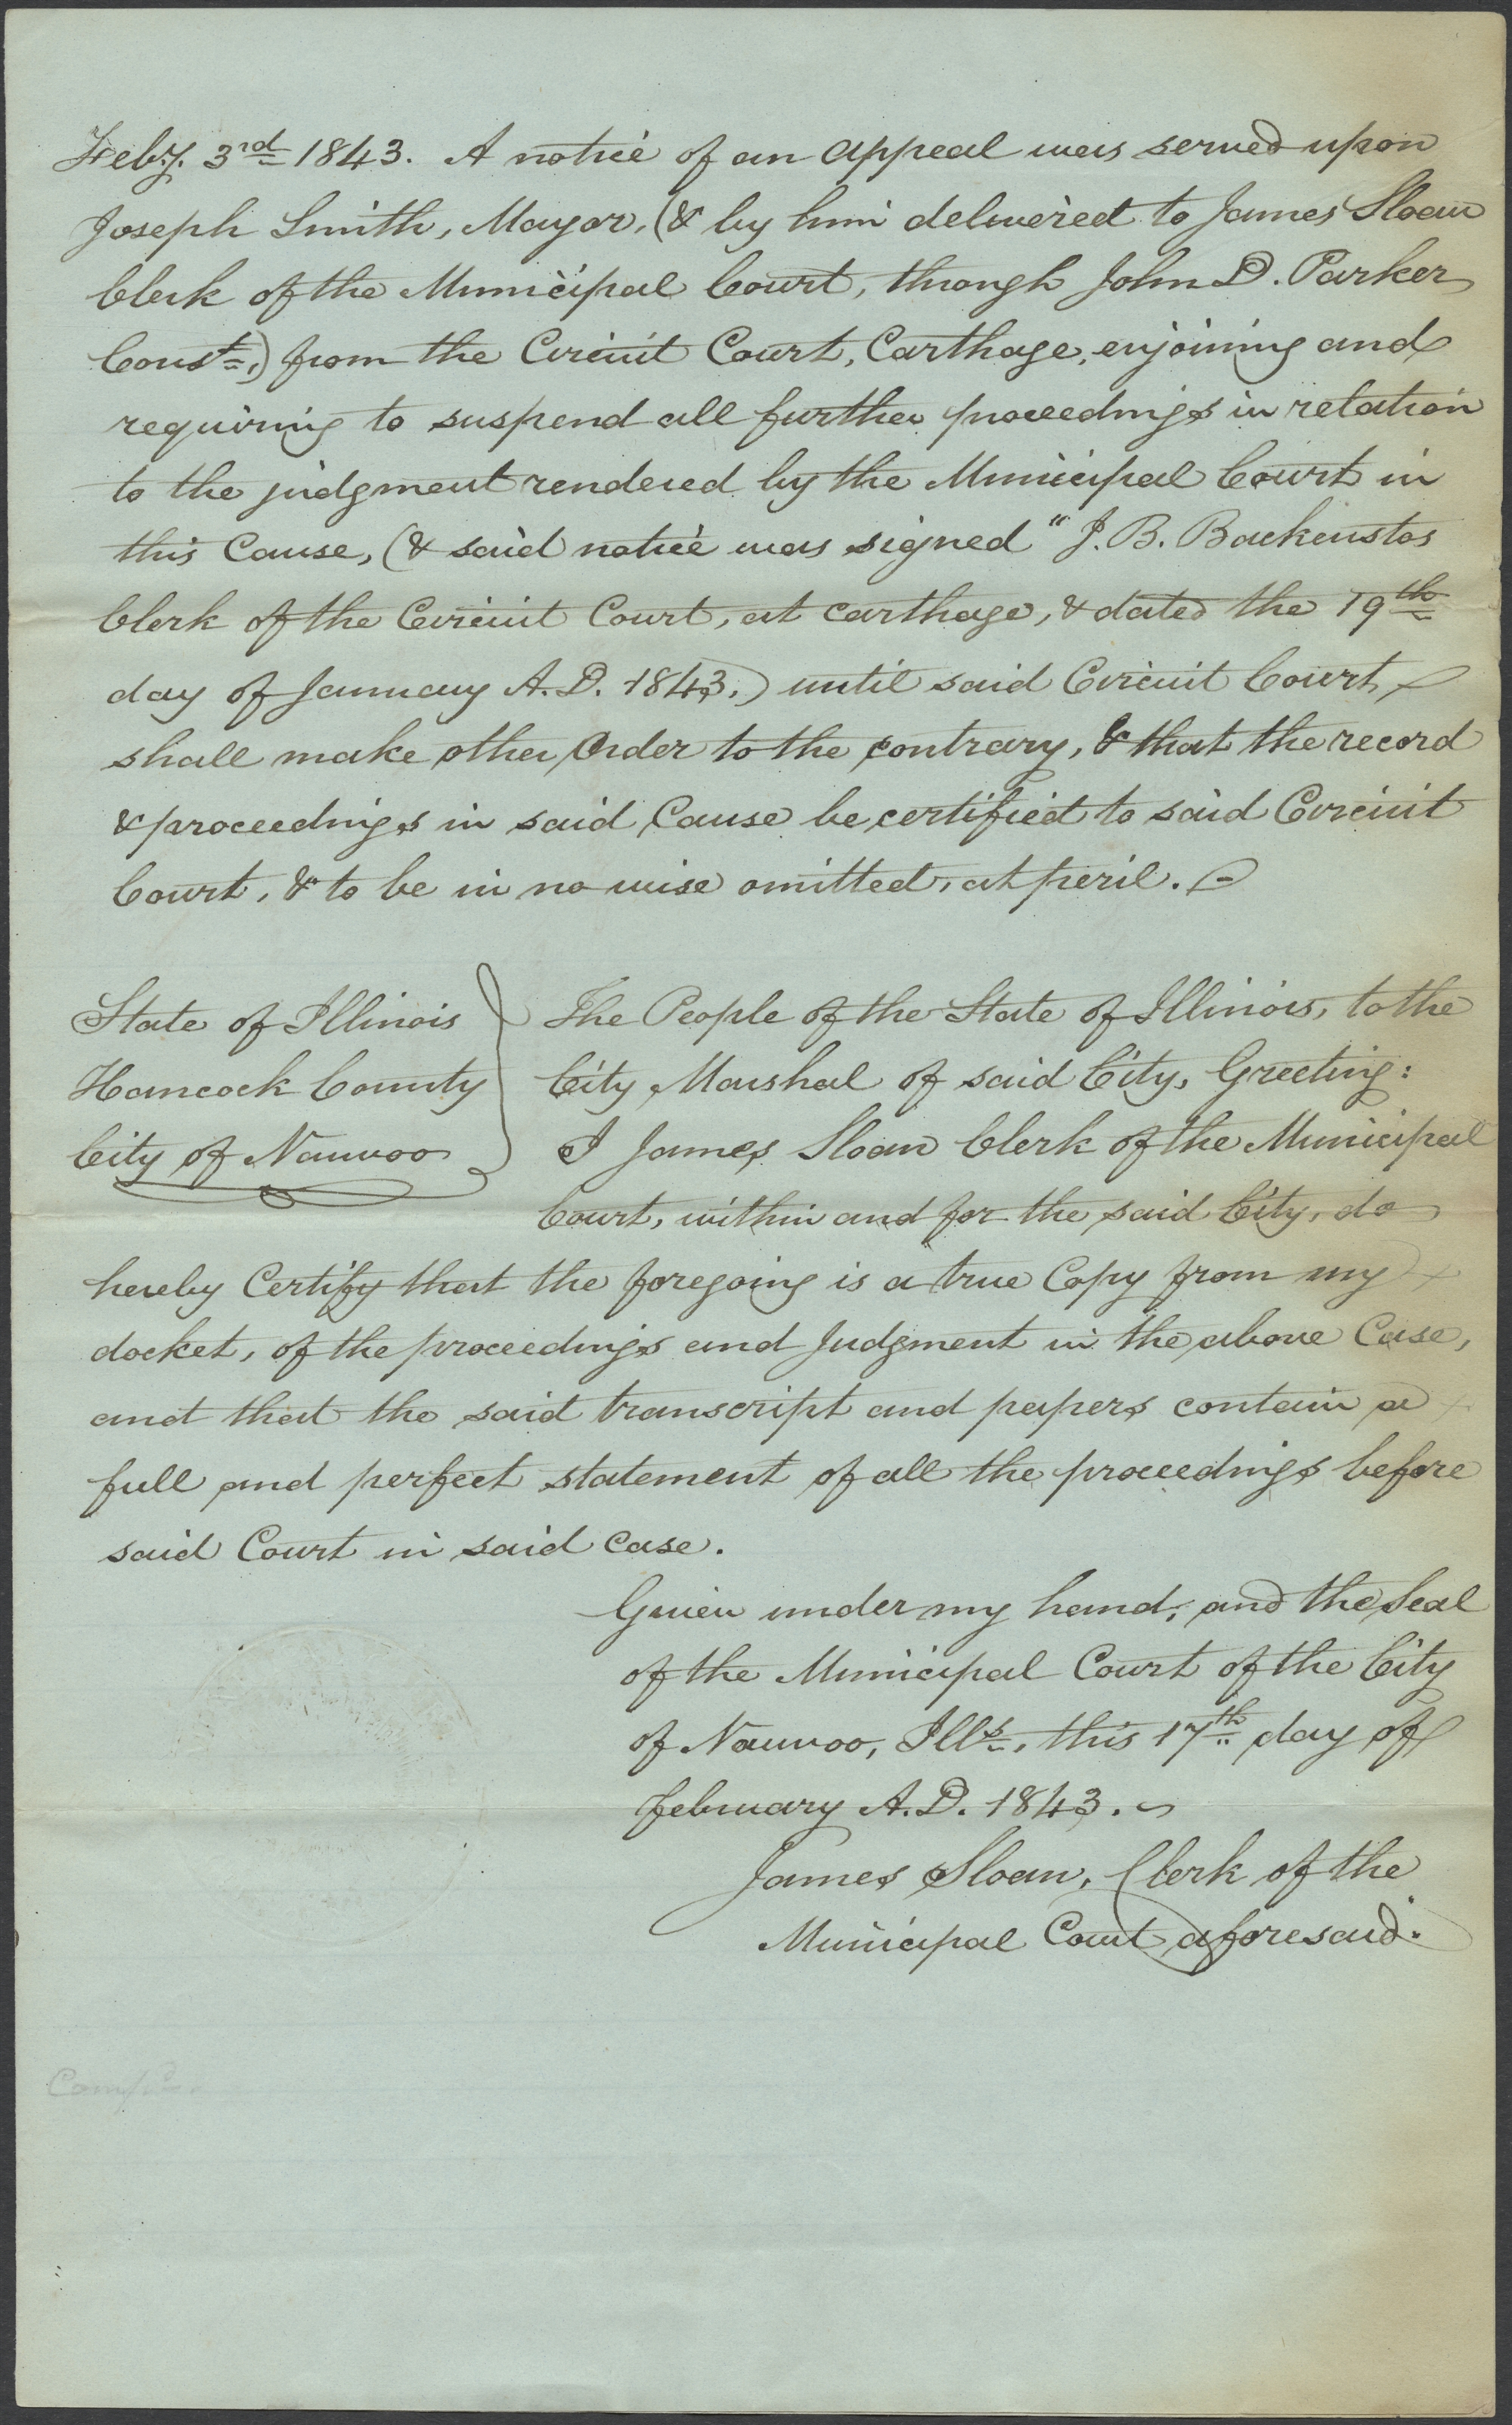 Feby. 3rd 1843. A notice of an appeal was served upon
Joseph Smith, Mayor, (& by him delivered to James Sloan
Clerk of the Municipal Court, through John D. Parker
Const.,) from the Circuit Court, Carthage, enjoining and
requiring to suspend all further proceedings in relation
to the judgment rendered by the Municipal Court in
this Cause, (& said notice was signed "J. B. Backenstos
Clerk of the Circuit Court, at Carthage, & dated the 19th
day of January A. D. 1843,) until said Circuit Court
shall make other Order to the contrary, & that the record
& proceedings in said Cause be certified to said Circuit
Court, & to be in no wise omitted, at peril.
State of Illinois
Hancock County
City of Nauvoo
The People of the State of Illinois, to the
City Marshal of said City, Greeting:
I James Sloan Clerk of the Municipal
Court, within and for the said City, do
hereby Certify that the foregoing is a true Copy from my
docket, of the proceedings and Judgment in the above Case,
and that the said transcript and papers contain a
full and perfect statement of all the proceedings before
said Court in said Case.
Given under my hand, and the Seal
of the Municipal Court of the City
of Nauvoo, Ills., this 17th day of
February A. D. 1843.
James Sloan, Clerk of the
Municipal Court aforesaid.